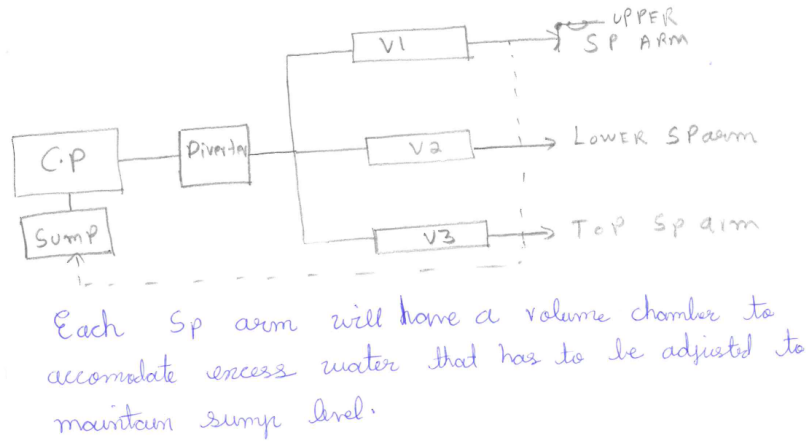 UPPER
V1
SP ARM
C.P
Diverter
V2
LOWER SParm
Sump
V3
TOP Sp arm
Each Sp arm will have a volume chamber to
accomodate excess water that has to be adjusted to
maintain sump level.